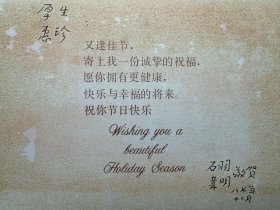 厚生
惠珍：
又逢佳节，
寄上我一份诚挚的祝福，
愿你拥有更健康，
快乐与幸福的将来。
祝你节日快乐
Wishing you a
beautiful
Holiday Season
石羽
叶明 敬贺